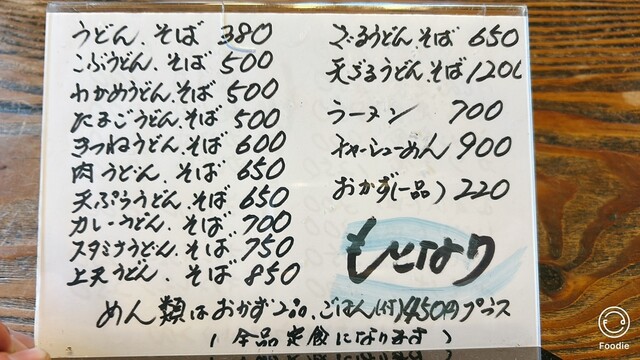 うどん、そば 380
こぶうどん、そば 500
わかめうどん、そば 500
たまごうどん、そば 500
きつねうどん、そば 600
肉うどん、そば 650
天ぷらうどん、そば 650
カレーうどん、そば 700
スタミナうどん、そば 750
上天うどん、そば 850
ざるうどん、そば 650
天ざるうどん、そば 1200
ラーメン 700
チャーシューめん 900
おかず(一品) 220
もとなり
めん類はおかず2品、ごはん(付)450円プラス
(全品定食になります)
Foodie